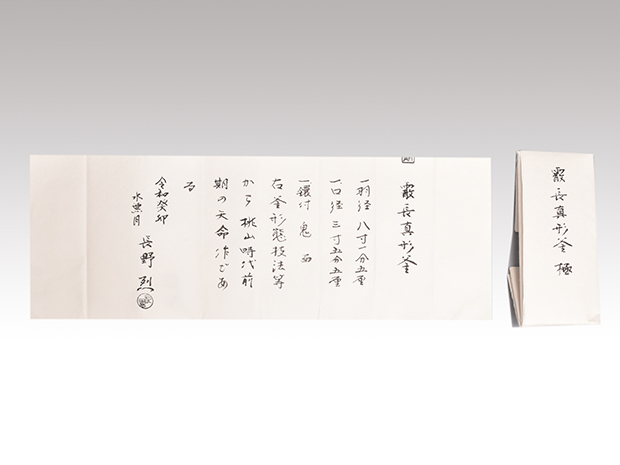 霰長真形釜
一羽径 八寸一分五厘
一口径 三寸五分五厘
一鐶付 鬼面
右釜形態技法等
から桃山時代前
期の天命作であ
る
令和癸卯
水無月 長野烈
霰長真形釜 極